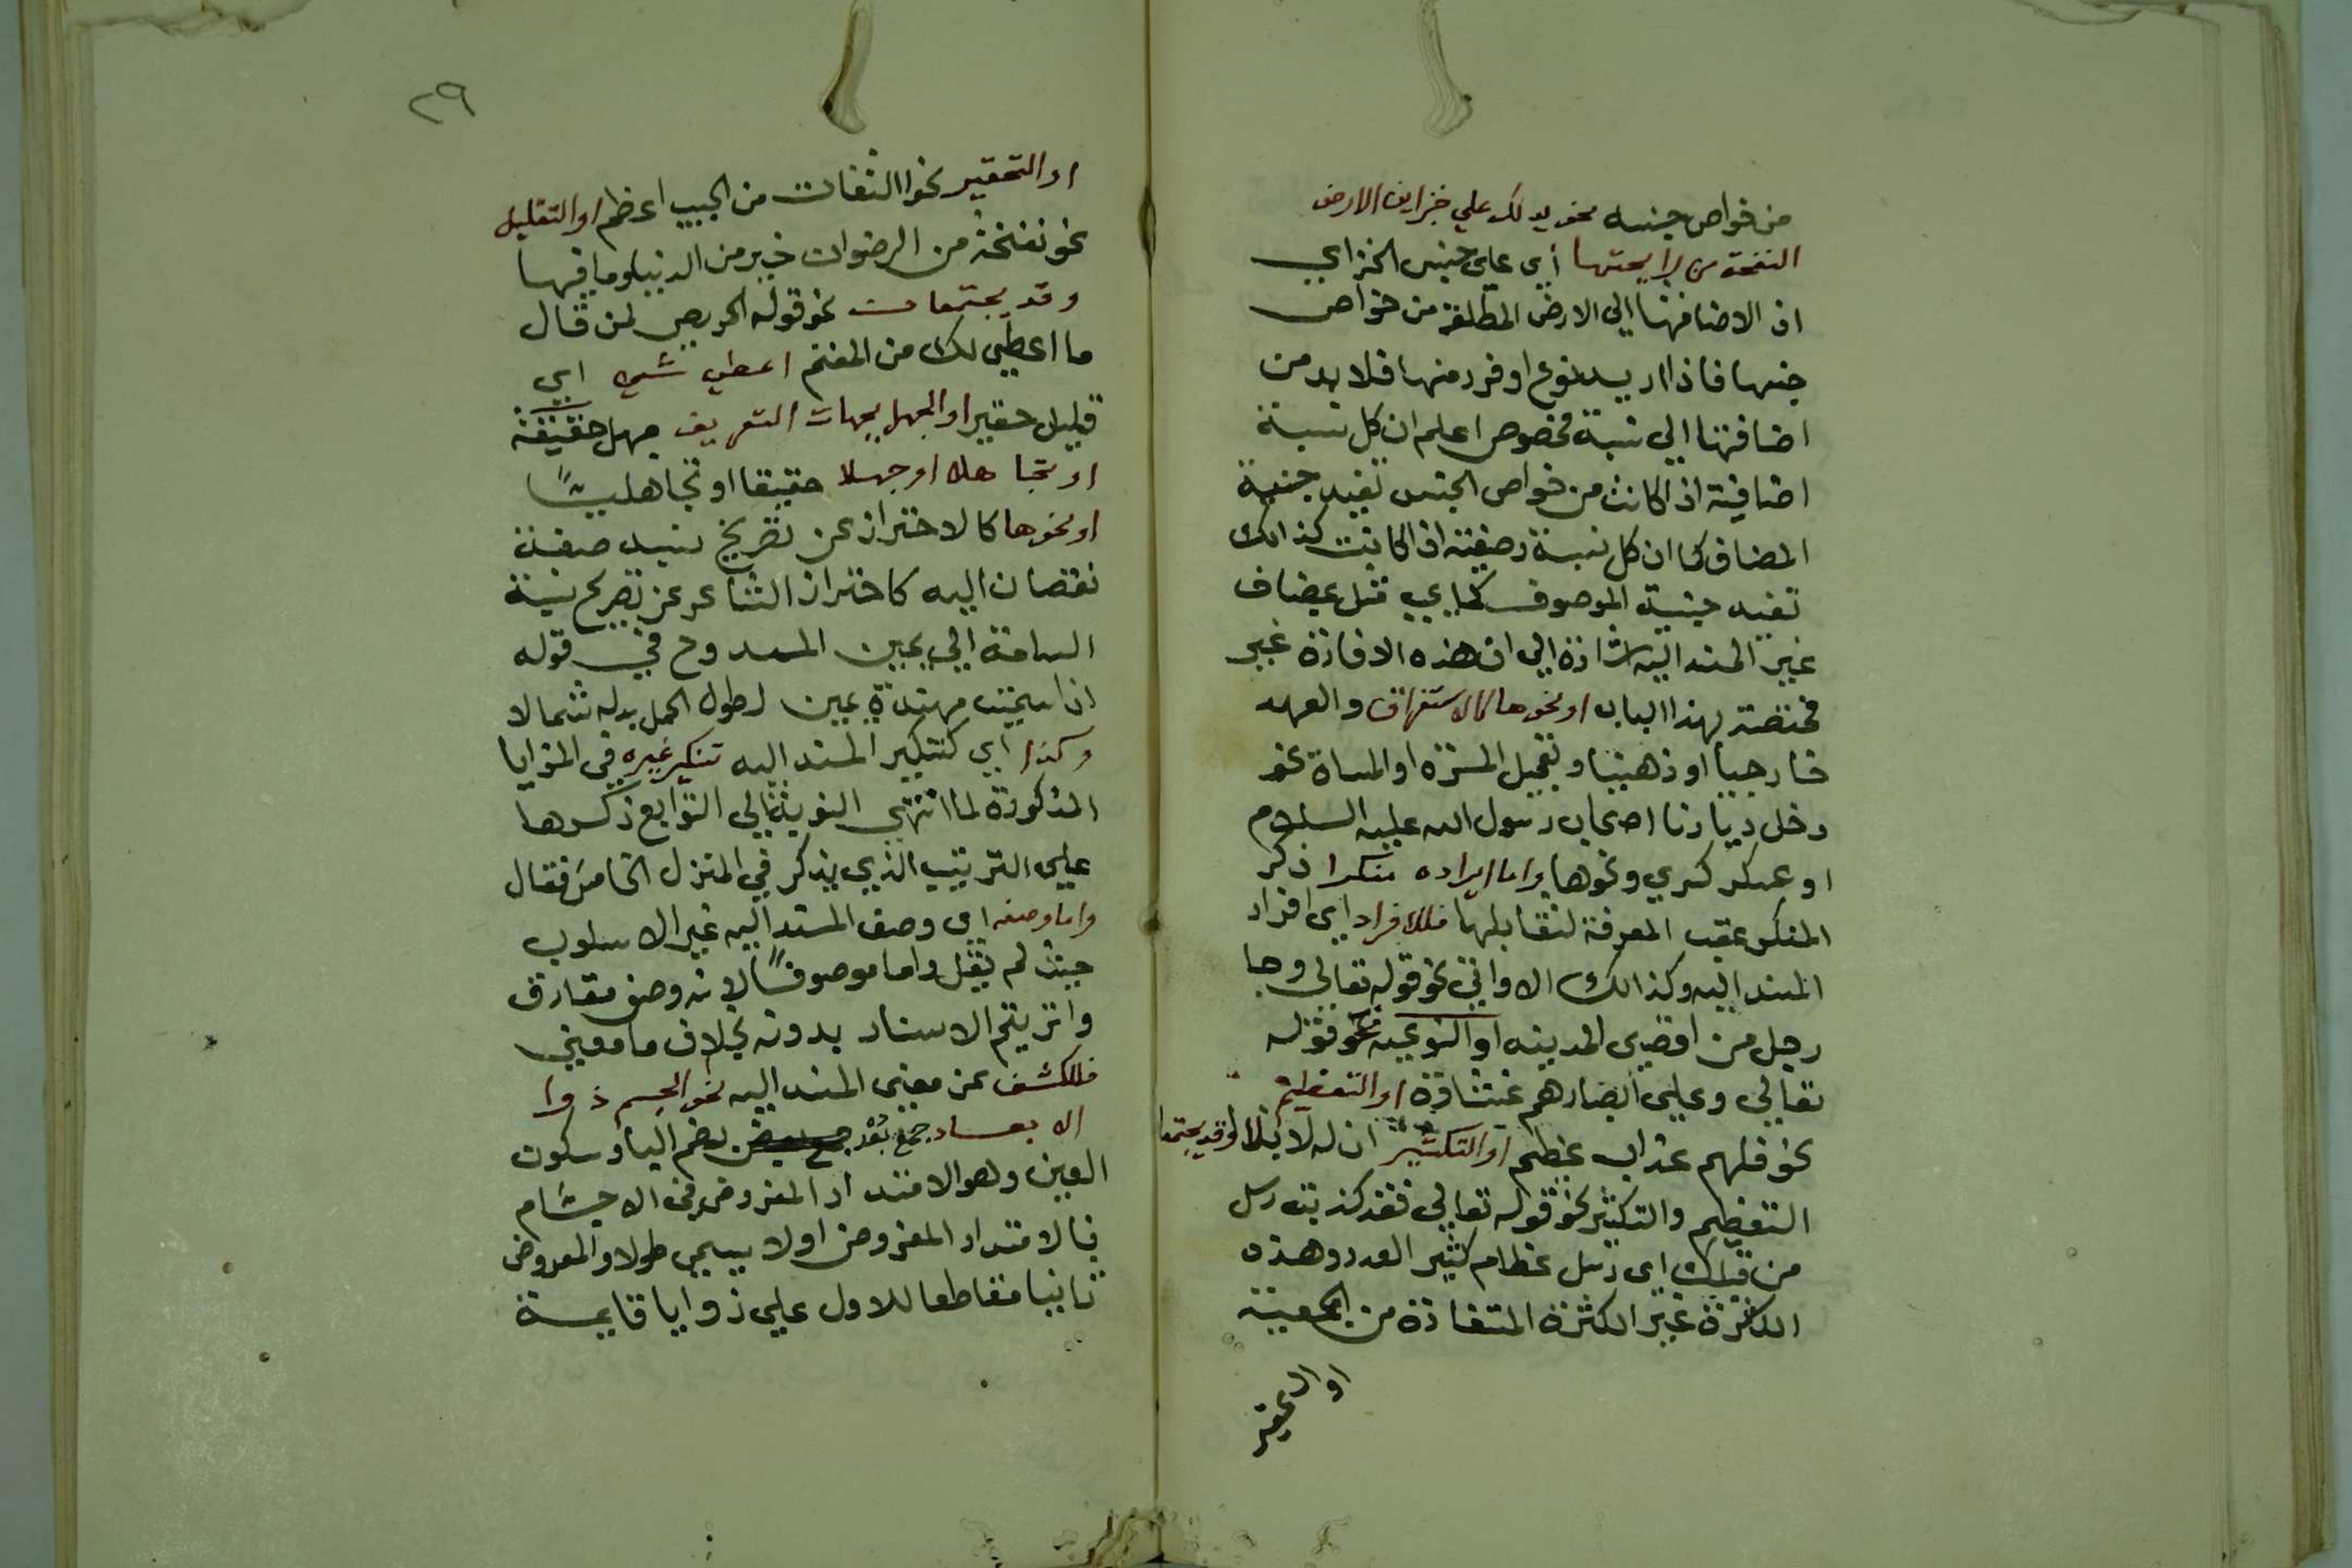 من خواص جنسه نحو يدلك علي خزاين الارض
النفحة من رايحتها اي علي جنس الخزاي
اذ الاضافتها الي الارض المطلقة من خواص
جنسها فاذا اريد نوع او فرد منها فلا بد من
اضافتها الي نسبة مخصوص اعلم ان كل نسبة
اضافية اذا كانت من خواص الجنس تفيد جنسية
المضاف كما ان كل نسبة وصفية اذا كانت كذالك
تفيد جنسية الموصوف كما يجي مثل يضاف
غير المسند اليه اشارة الي ان هذه الافادة غير
مختصة بهذا الباب او نحوها كالاستغراق والعهد
خارجيا او ذهنيا وتعجيل المسرة او المساة نحو
دخل ديارنا اصحاب رسول الله عليه السلام
او عسكر كسري ونحوها واما ايراده منكرا ذكر
المنكر عقب المعرفة لتقابلها فللافراد اي افراد
المسند اليه وكذالك الاواتي نحو قوله تعالي وجا
رجل من اقصي المدينه او النوعيه نحو قوله
تعالي وعلي ابصارهم غشاوة او التعظيم
نحو فلهم عذاب عظيم او التكثير ان له لابلا وقد يجتمعا
التعظيم والتكثير نحو قوله تعالي فقد كذبت رسل
من قبلك اي رسل عظام كثير العدد وهذه
الكثرة غير الكثرة المتفادة من الجمعية
او التحقير
٢٩
او التحقير نحو التفات من الحبيب اعظم او التقليل
نحو نفخة من الرضوان خير من الدنيا وما فيها
وقد يجتمعات نحو قوله الحريص لمن قال
ما اعطي لك من المغنم اعطي شي اي
قليل حقير او الجهل بجهات التعريف جهل حقيقة
او تجاهلا او جهلا حقيقا او تجاهليًا
او نحوها كالاحتراز عن تصريح نسبة صفة
نقصان اليه كاحتراز الشاعر عن تصريح نسبة
السامة الي يمين الممدوح في قوله
اذا سيمت مهندة يمين لطول الحمل بدله شمالا
وكذا اي كتنكير المسند اليه تنكير غيره في المزايا
المذكورة لما انتهي النوبة الي التوابع ذكرها
علي الترتيب الذي يذكر في المنزل الخامس فقال
واما وصفه اي وصف المسند اليه غير الاسلوب
حيث لم يقل واما موصوفًا لانه وصف مقارق
وانه يتم الاسناد بدونه بخلاف ما معني
فللكشف عن معني المسند اليه نحو الجسم ذوا
الابعاد جمع بُعْد بضم البا وسكون
العين وهو الامتداد المفروض في الاجسام
فالامتداد المفروض اولا يسمي طولا والمفروض
ثانيا مقاطعا للاول علي زوايا قايمة